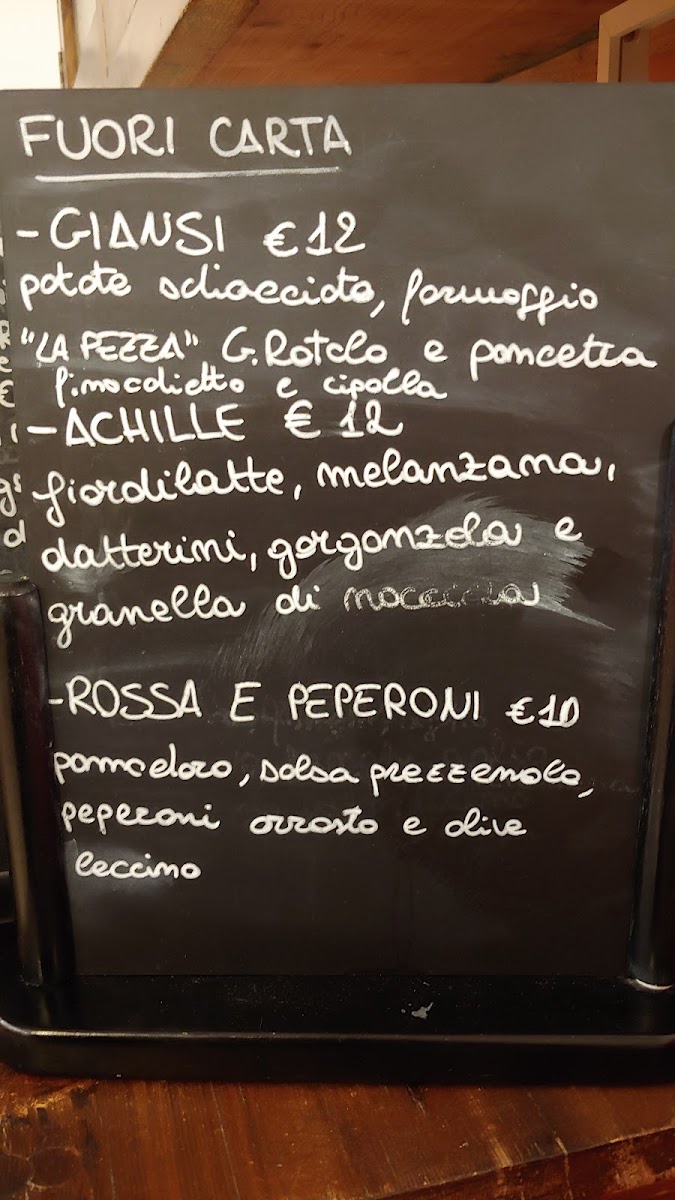 FUORI CARTA
- GIANSI €12
patate schiacciate, formaggio
"LA PEZZA" G. Rotolo e pancetta
finocchietto e cipolla
- ACHILLE €12
fiordilatte, melanzana,
datterini, gorgonzola e
granella di nocciola
- ROSSA E PEPERONI €10
pomodoro, salsa prezzemolo,
peperoni arrosto e olive
leccino